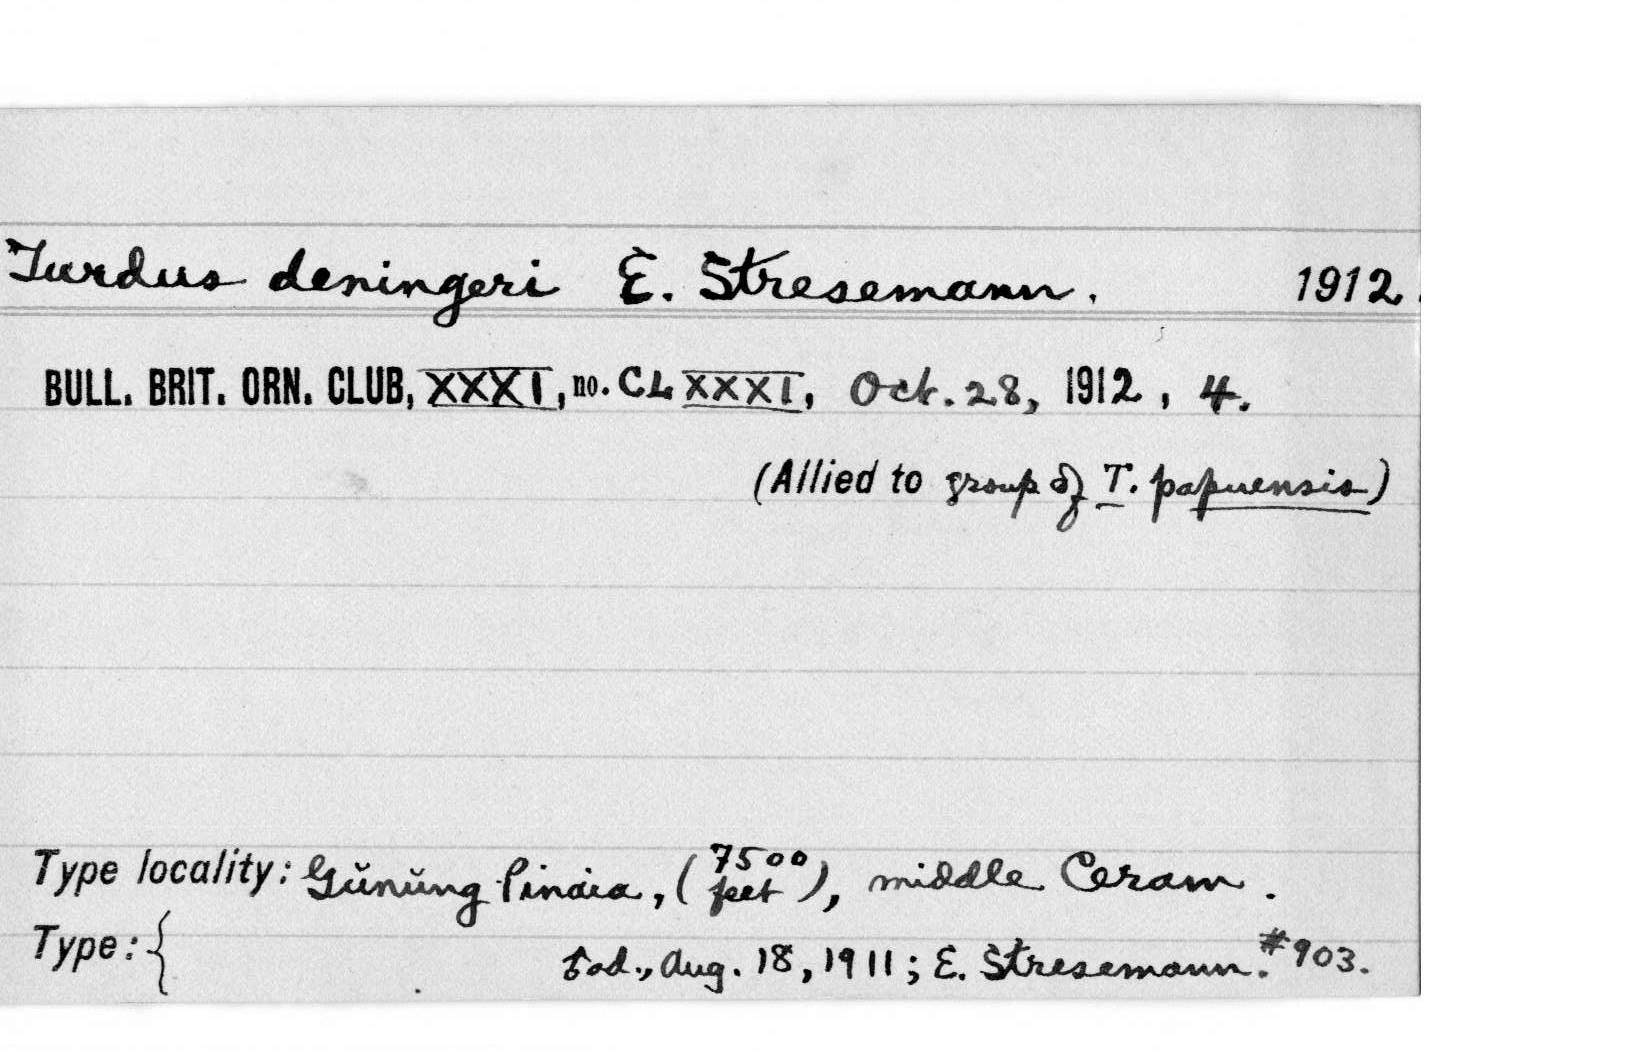 Turdus deningeri E. Stresemann. 1912.
BULL. BRIT. ORN. CLUB, XXXI, no. CLXXXI, Oct. 28, 1912, 4.
(Allied to group of T. papuensis)
Type locality: Gŭnŭng Pinaia, (7500 feet), middle Ceram.
Type: { ad., Aug. 18, 1911; E. Stresemann. #903.